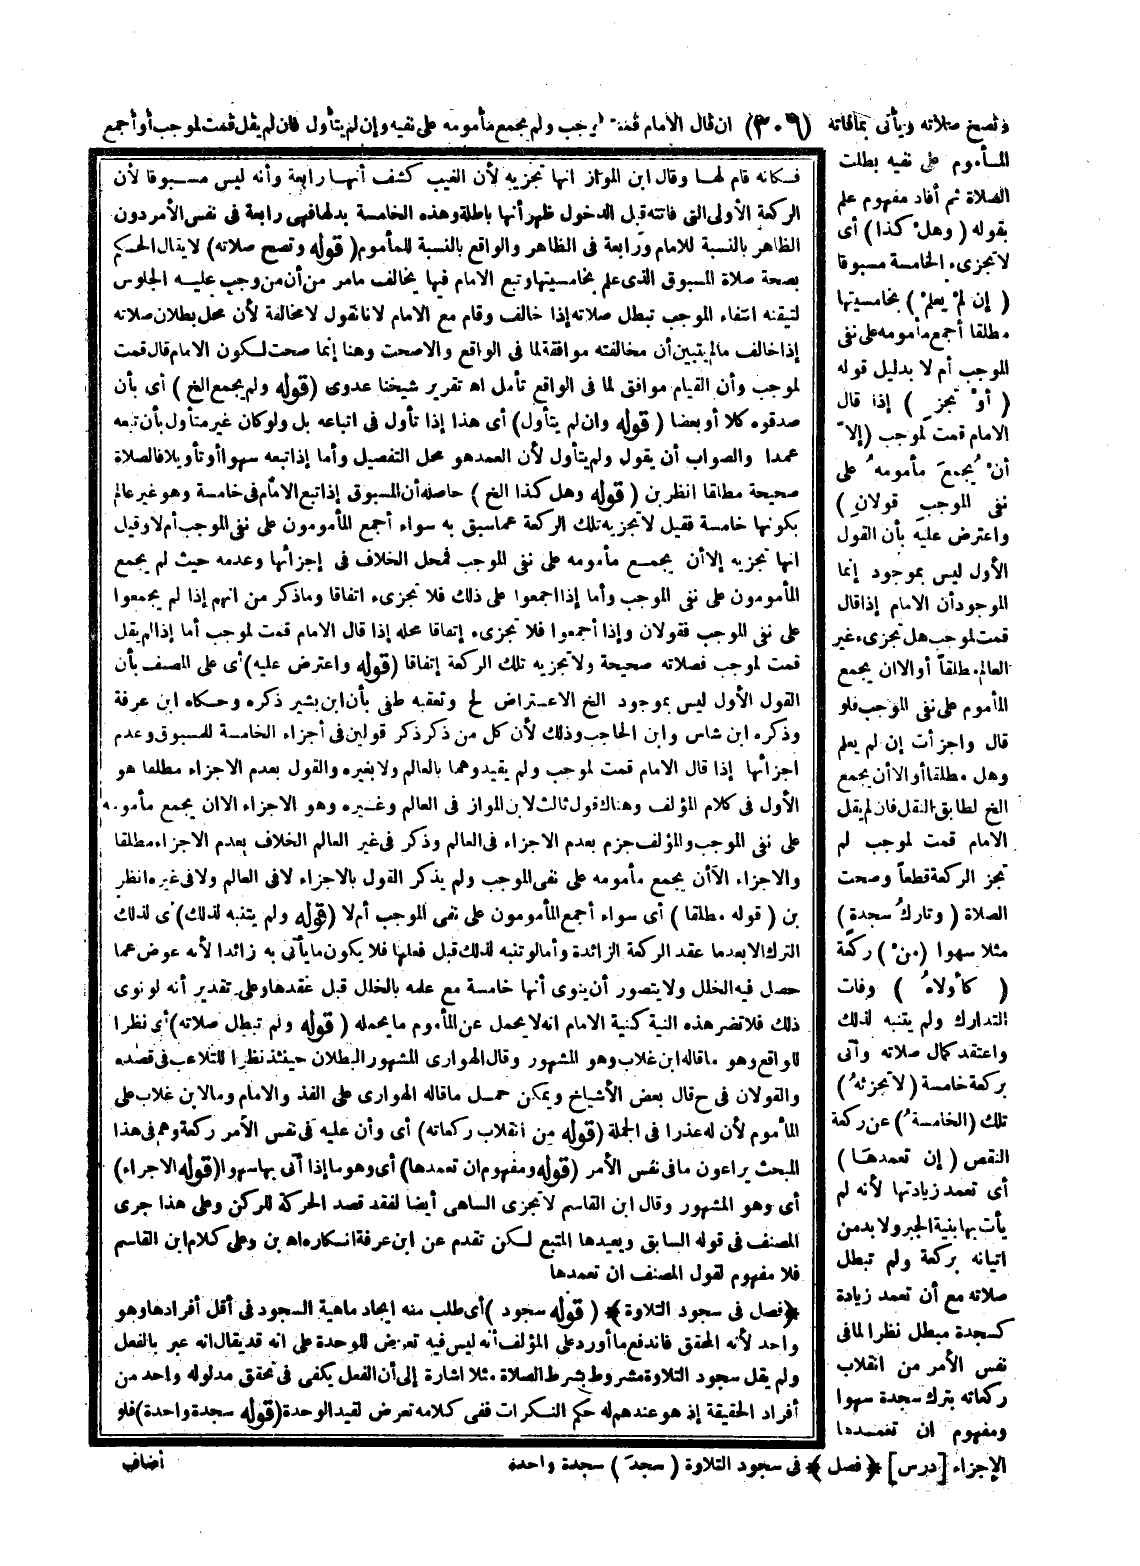 وتصح صلاته ويأتى بمافاته (٣٠٦) ان قال الامام قمت لموجب ولم يجمع مأمومه على نفيه وإن لم يتأول فان لم يقل قمت لموجب أو أجمع
المأموم على نفيه بطلت
الصلاة ثم أفاد مفهوم علم
بقوله (وهل كذا) أى
لا تجزىء الخامسة مسبوقا
(إن لمْ يعلمْ) بخامسيتها
مطلقا أجمع مأمومه على نفى
الموجب أم لا بدليل قوله
(أوْ تجزِ) إذا قال
الامام قمت لموجب (إلاّ
أنْ يُجمعَ مأمومهُ على
نفى الموجبِ قولانِ)
واعترض عليه بأن القول
الأول ليس بموجود إنما
الموجود أن الامام إذا قال
قمت لموجب هل تجزىء غير
العالم مطلقاً أو الا ان يجمع
المأموم على نفى الموجب فلو
قال واجزأت إن لم يعلم
وهل مطلقا أو الا أن يجمع
الخ لطابق النقل فان لم يقل
الامام قمت لموجب لم
تجز الركعة قطعاً وصحت
الصلاة (وتاركُ سجدةٍ)
مثلا سهوا (منْ) ركعة
(كأولاهُ) وفات
التدارك ولم يتنبه لذلك
واعتقد كمال صلاته وأتى
بركعة خامسة (لا تجزئهُ)
تلك (الخامسةُ) عن ركعة
النقص (إن تعمدهَا)
أى تعمد زيادتها لأنه لم
يأت بها بنية الجبر ولا بد من
اتيانه بركعة ولم تبطل
صلاته مع أن تعمد زيادة
كسجدة مبطل نظرا لما فى
نفس الأمر من انقلاب
ركعاته بترك سجدة سهوا
ومفهوم ان تعمدها
الإجزاء [درس] ﴿فصل﴾ فى سجود التلاوة (سجدَ) سجدة واحدة
أضاف
فكانه قام لها وقال ابن المواز انها تجزيه لأن الغيب كشف أنها رابعة وأنه ليس مسبوقا لأن
الركعة الأولى التى فاتته قبل الدخول ظهر أنها باطلة وهذه الخامسة بدلها فهى رابعة فى نفس الأمر دون
الظاهر بالنسبة للامام ورابعة فى الظاهر والواقع بالنسبة للمأموم (قوله وتصح صلاته) لا يقال الحكم
بصحة صلاة المسبوق الذى علم بخامسيتها وتبع الامام فيها يخالف مامر من أن من وجب عليه الجلوس
لتيقنه انتفاء الموجب تبطل صلاته إذا خالف وقام مع الامام لانا نقول لا مخالفة لأن محل بطلان صلاته
إذا خالف مالم يتبين أن مخالفته موافقة لما فى الواقع والاصحت وهنا إنما صحت لكون الامام قال قمت
لموجب وأن القيام موافق لما فى الواقع تأمل اه تقرير شيخنا عدوى (قوله ولم يجمع الخ) أى بأن
صدقوه كلا أو بعضا (قوله وان لم يتأول) أى هذا إذا تأول فى اتباعه بل ولو كان غير متأول بأن تبعه
عمدا والصواب أن يقول ولم يتأول لأن العمد هو محل التفصيل وأما إذا تبعه سهوا أو تأويلا فالصلاة
صحيحة مطلقا انظر بن (قوله وهل كذا الخ) حاصله أن المسبوق إذا تبع الامام فى خامسة وهو غير عالم
بكونها خامسة فقيل لا تجزيه تلك الركعة عما سبق به سواء أجمع المأمومون على نفى الموجب أم لا وقيل
انها تجزيه إلا أن يجمع مأمومه على نفى الموجب فمحل الخلاف فى إجزأئها وعدمه حيث لم يجمع
المأمومون على نفى الموجب وأما إذا اجمعوا على ذلك فلا تجزىء اتفاقا وماذكر من انهم إذا لم يجمعوا
على نفى الموجب فقولان وإذا أجمعوا فلا تجزىء إتفاقا محله إذا قال الامام قمت لموجب أما إذا لم يقل
قمت لموجب فصلاته صحيحة ولا تجزيه تلك الركعة إتفاقا (قوله واعترض عليه) أى على المصنف بأن
القول الأول ليس بموجود الخ الاعتراض لح وتعقبه طفى بأن ابن بشير ذكره وحكاه ابن عرفة
وذكره ابن شاس وابن الحاجب وذلك لأن كل من ذكر ذكر قولين فى أجزاء الخامسة للمسبوق وعدم
اجزأئها إذا قال الامام قمت لموجب ولم يقيدوهما بالعالم ولا بغيره والقول بعدم الاجزاء مطلقا هو
الأول فى كلام المؤلف وهناك قول ثالث لابن المواز فى العالم وغيره وهو الاجزاء الا ان يجمع مأمومه
على نفى الموجب والمؤلف جزم بعدم الاجزاء فى العالم وذكر فى غير العالم الخلاف بعدم الاجزاء مطلقا
والاجزاء الا أن يجمع مأمومه على نفى الموجب ولم يذكر القول بالاجزاء لا فى العالم ولا فى غيره انظر
بن (قوله مطلقا) أى سواء أجمع المأمومون على نفى الموجب أم لا (قوله ولم يتنبه لذلك) أى لذلك
الترك الا بعد ما عقد الركعة الزائدة وأما لو تنبه لذلك قبل فعلها فلا يكون ما يأتى به زائدا لأنه عوض عما
حصل فيه الخلل ولا يتصور أن ينوى أنها خامسة مع علمه بالخلل قبل عقدها وعلى تقدير أنه لو نوى
ذلك فلا تضر هذه النية كنية الامام انه لا يحمل عن المأموم ما يحمله (قوله ولم تبطل صلاته) أى نظرا
للواقع وهو ماقاله ابن غلاب وهو المشهور وقال الهوارى المشهور البطلان حينئذ نظرا للتلاعب فى قصده
والقولان فى ح قال بعض الأشياخ ويمكن حمل ماقاله الهوارى على الفذ والامام ومالابن غلاب على
المأموم لأن له عذرا فى الجملة (قوله من انقلاب ركعاته) أى وأن عليه فى نفس الأمر ركعة وهم فى هذا
المبحث يراعون ما فى نفس الأمر (قوله ومفهوم ان تعمدها) أى وهو ما إذا أتى بها سهوا (قوله الاجزاء)
أى وهو المشهور وقال ابن القاسم لا تجزى الساهى أيضا لفقد قصد الحركة للركن وعلى هذا جرى
المصنف فى قوله السابق ويعيدها المتبع لكن تقدم عن ابن عرفة انكاره اه بن وعلى كلام ابن القاسم
فلا مفهوم لقول المصنف ان تعمدها
﴿فصل فى سجود التلاوة﴾ (قوله سجود) أى طلب منه ايجاد ماهية السجود فى أقل أفرادها وهو
واحد لأنه المحقق فاندفع ما أورد على المؤلف أنه ليس فيه تعرض للوحدة على انه قد يقال انه عبر بالفعل
ولم يقل سجود التلاوة مشروط بشرط الصلاة مثلا اشارة إلى أن الفعل يكفى فى تحقق مدلوله واحد من
أفراد الحقيقة إذ هو عندهم له حكم النكرات ففى كلامه تعرض لقيد الوحدة (قوله سجدة واحدة) فلو